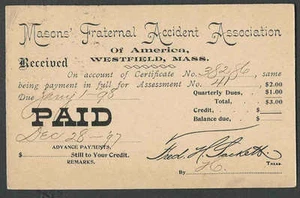 Masons' Fraternal Accident Association
Of America,
WESTFIELD, MASS.
Received
On account of Certificate No. 38286, same
being payment in full for Assessment No. 41 $2.00
Due Jany 1 98 Quarterly Dues, $1.00
Total, $3.00
Credit, $
Balance due, $
PAID
Dec 28-97
ADVANCE PAYMENTS.
$ Still to Your Credit.
REMARKS.
Fred. H. Sackett
TREAS.
By